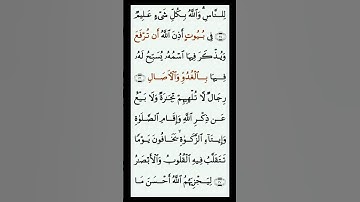 لِلنَّاسِ وَٱللَّهُ بِكُلِّ شَىْءٍ عَلِيمٌ
فِى بُيُوتٍ أَذِنَ ٱللَّهُ أَن تُرْفَعَ
وَيُذْكَرَ فِيهَا ٱسْمُهُۥ يُسَبِّحُ لَهُۥ
فِيهَا بِٱلْغُدُوِّ وَٱلْءَاصَالِ
رِجَالٌ لَّا تُلْهِيهِمْ تِجَٰرَةٌ وَلَا بَيْعٌ
عَن ذِكْرِ ٱللَّهِ وَإِقَامِ ٱلصَّلَوٰةِ
وَإِيتَآءِ ٱلزَّكَوٰةِ يَخَافُونَ يَوْمًا
تَتَقَلَّبُ فِيهِ ٱلْقُلُوبُ وَٱلْأَبْصَٰرُ
لِيَجْزِيَهُمُ ٱللَّهُ أَحْسَنَ مَا